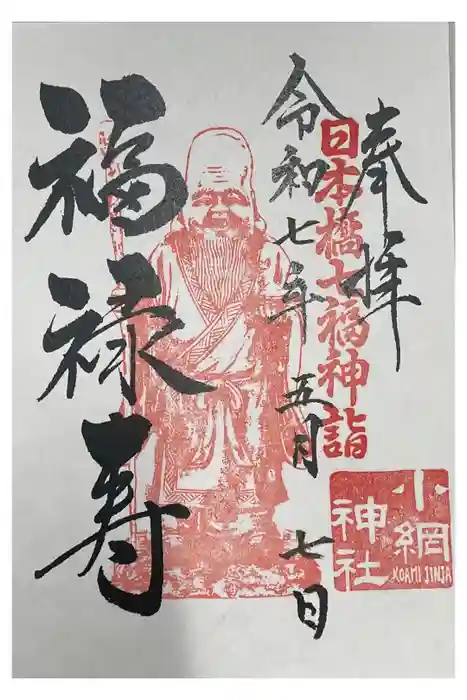 奉拝
日本橋七福神詣
令和七年五月七日
福禄寿
小網
神社
KOAMI JINJA